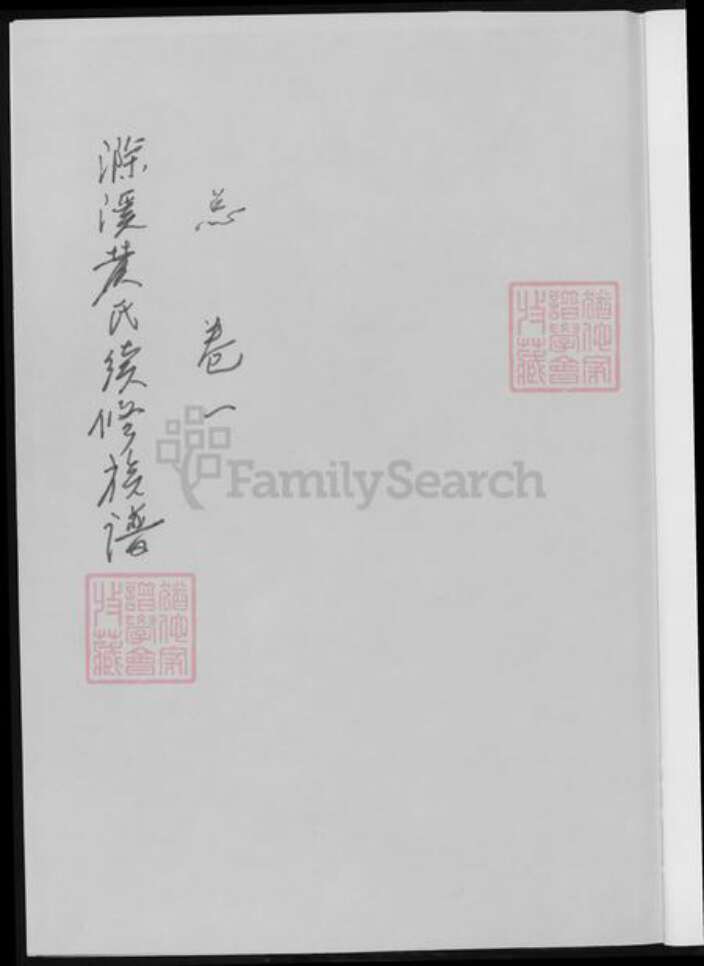 总 卷一
滁溪黄氏续修族谱
猶他家
譜學會
收藏
猶他家
譜學會
收藏
FamilySearch